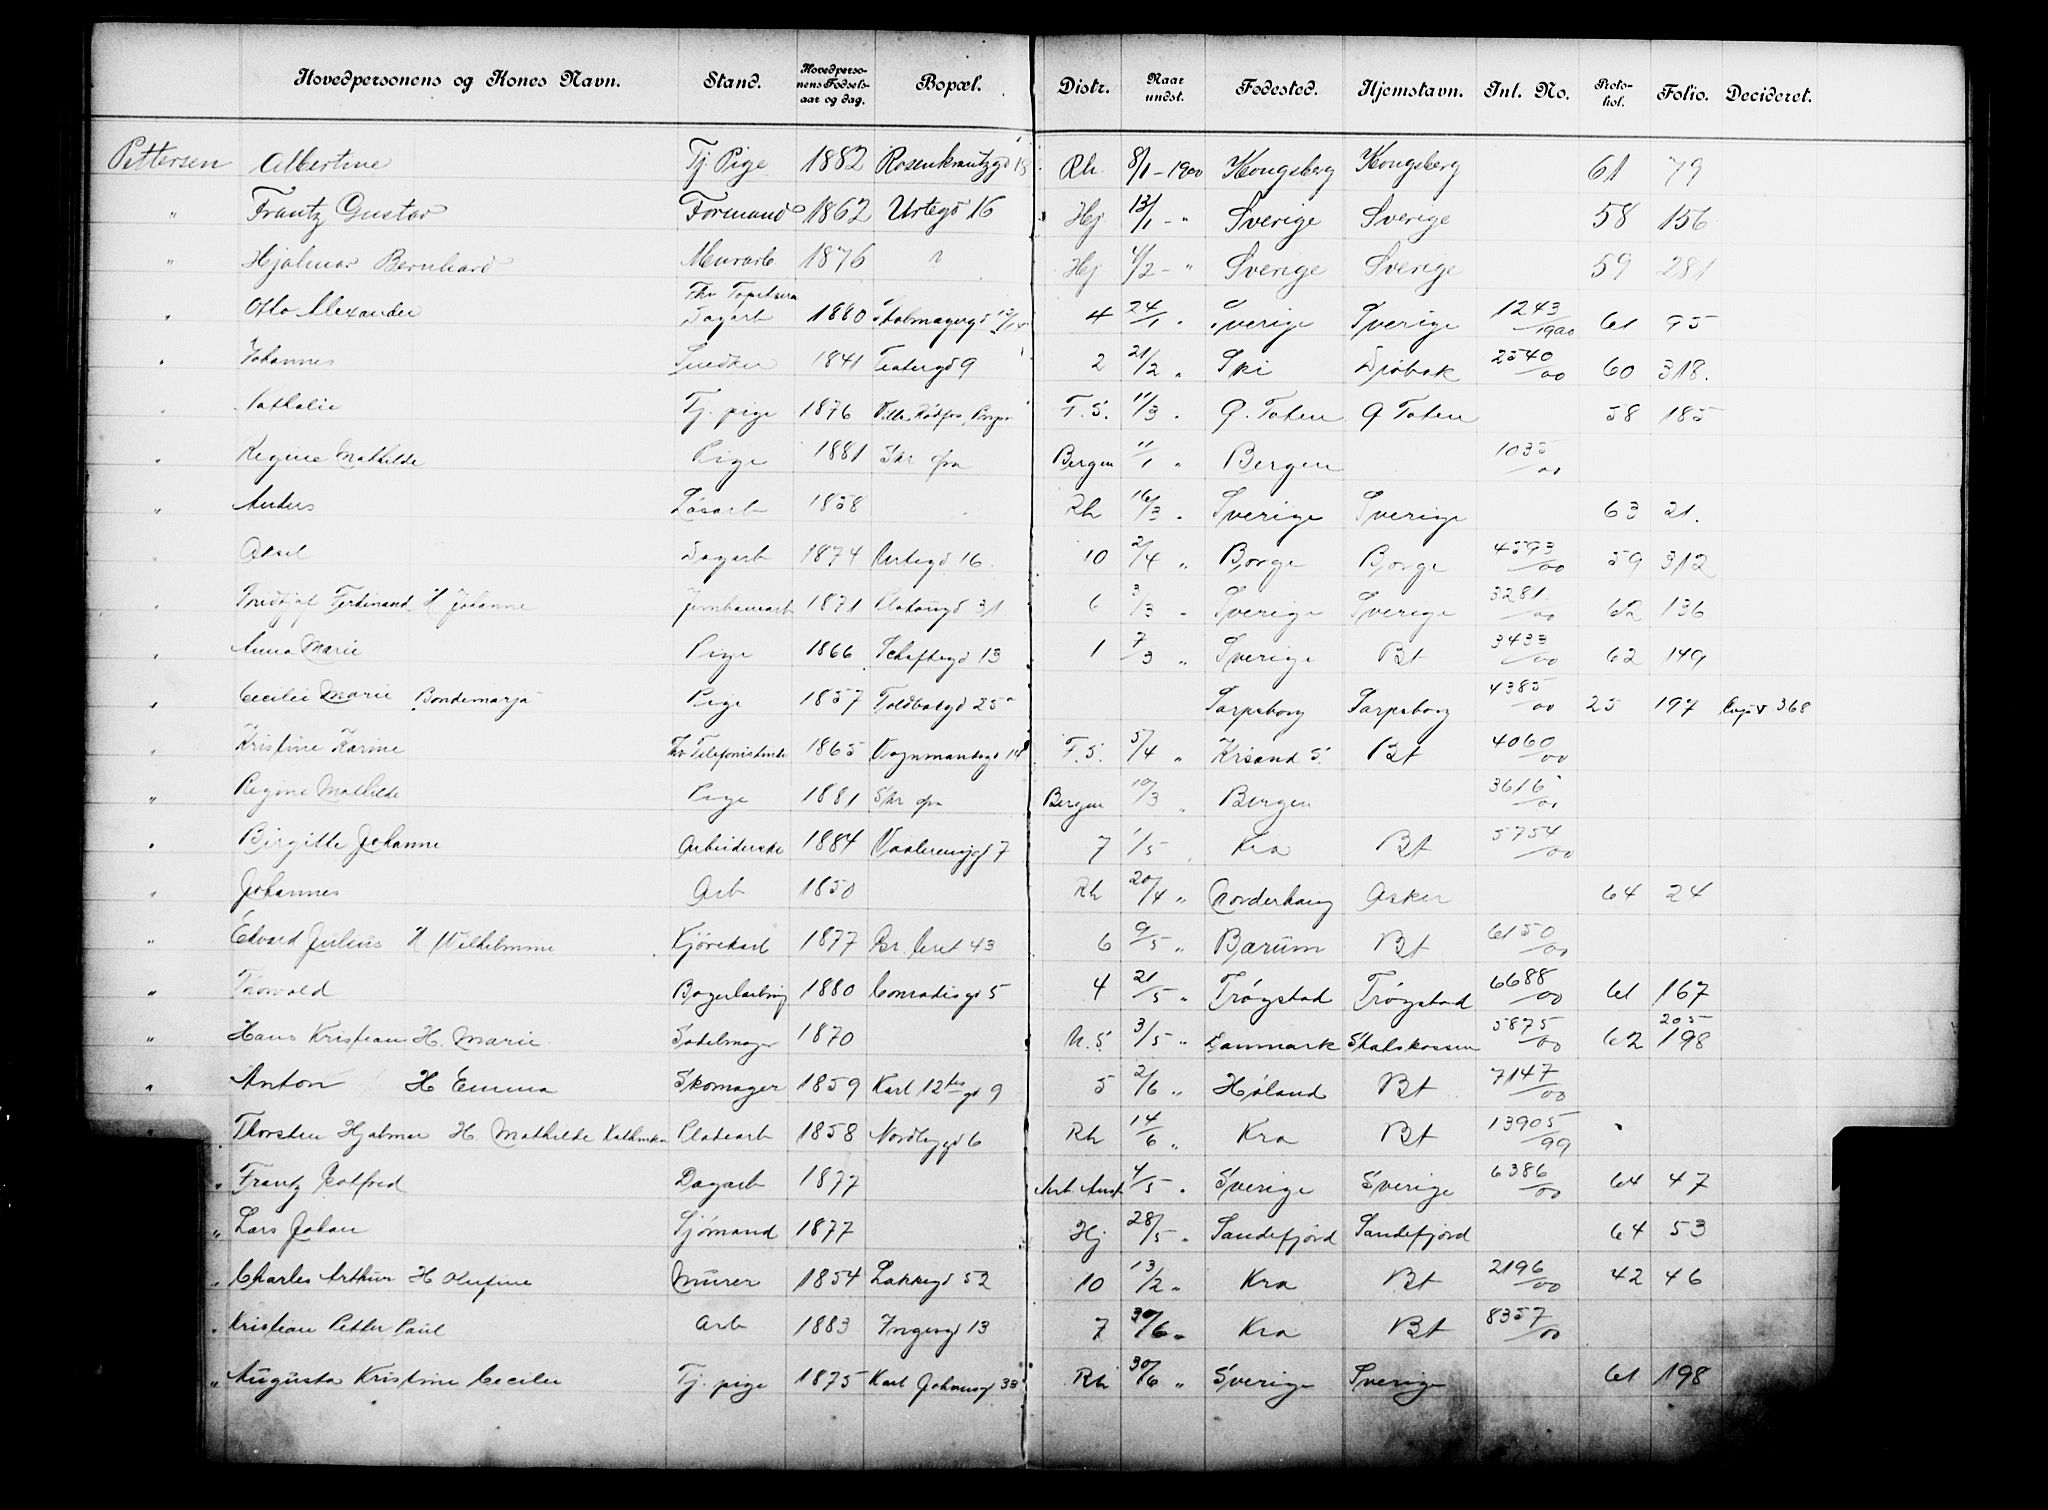 Hovedpersonens og Kones Navn. Stand. Hovedperso-nens Fødsels-aar og dag. Bopæl. Distr. Naar undst. Fødested. Hjemstavn. Int. No. Proto-kol. Folio. Decideret.
Pettersen Albertine Tj. Pige 1882 Rosenkrantzgd 18 Rh. 8/1 - 1900 Kongsberg Kongsberg 61 79
" Frantz Gustav Formand 1862 Urtegd 16 Hj 13/1 - " Sverige Sverige 58 156
" Hjalmar Bernhard Murarb 1876 ? Hj 4/2 - " Sverige Sverige 59 281
" Otto Alexander Fhv Dagarb 1880 12/14 4 24/1 " Sverige Sverige 1243/1900 61 95
" Johannes Snedker 1841 Teatergd 9 2 21/2 " Ski Drøbak 2540/00 60 318.
" Nathalie Tj. pige 1876 F. S. 11/3 " Ø. Toten Ø Toten 58 185
" Regine Mathilde Pige 1881 Bergen 11/1 " Bergen 1035/00
" Anders Løsarb 1858 Rh 16/3 " Sverige Sverige 63 21.
" Aksel Dagarb 1874 Urtegd 16. 10 2/4 " Borge Borge 4593/00 59 312
" Fridtjof Ferdinand H Johanne 1871 31. 6 3/3 " Sverige Sverige 3281/00 62 136
" Anna Marie Pige 1866 Schaftegd 13 1 7/3 " Sverige Bt 3433/00 62 149
" Cecilie Marie Bondemarja Pige 1857 Toldbodgd 25 Sarpsborg Sarpsborg 4385/00 25 197 368
" Kristine Karine Fhv Telefonistinde 1865 Vognmandsgd 14 F. S. 5/4 " Krisand S. Bt 4060/00
" Regine Mathilde Pige 1881 Bergen 10/3 " Bergen 3616/00
" Birgitte Johanne Arbeiderske 1884 Vaalerenggd 7 7 1/5 " Kra Bt 5754/00
" Johannes Arb 1850 Rh 20/4 " Norderhaug Asker 64 24
" Edvard Julius H. Wilhelmine Kjörekarl 1877 43 6 9/5 " Bærum Bt 6150/00
" Thorvald 1880 Conradisgd 5 4 21/5 " Trøgstad Trøgstad 6688/00 61 167
" Hans Kristian H. Marie Sadelmager 1870 N. S. 3/5 " Danmark Statskassen 5875/00 62 205 198
" Anton H Emma Skomager 1859 Karl 12tes gd 9 5 2/6 " Høland Bt 7147/00
" Thorsten Hjalmar H. Mathilde Kathinka Pladearb 1858 Nordbygd 6 Rh 14/6 " Kra Bt 13905/99
" Frantz Gotfred Dagarb 1877 Arb. Anst 4/5 " Sverige Sverige 6386/00 64 47
" Lars Johan Sjømand 1877 Hj 28/5 " Sandefjord Sandefjord 64 53
" Charles Arthur H Rufine Murer 1854 Lakkegd 52 10 13/2 " Kra Bt 2196/00 42 46
" Kristian Petter Paul Arb 1883 Ingesgd 13 7 30/6 " Kra Bt 8357/00
" Augusta Kristine Cecilie Tj. pige 1875 Karl Johansgd 33 Rh 30/6 " Sverige Sverige 61 198